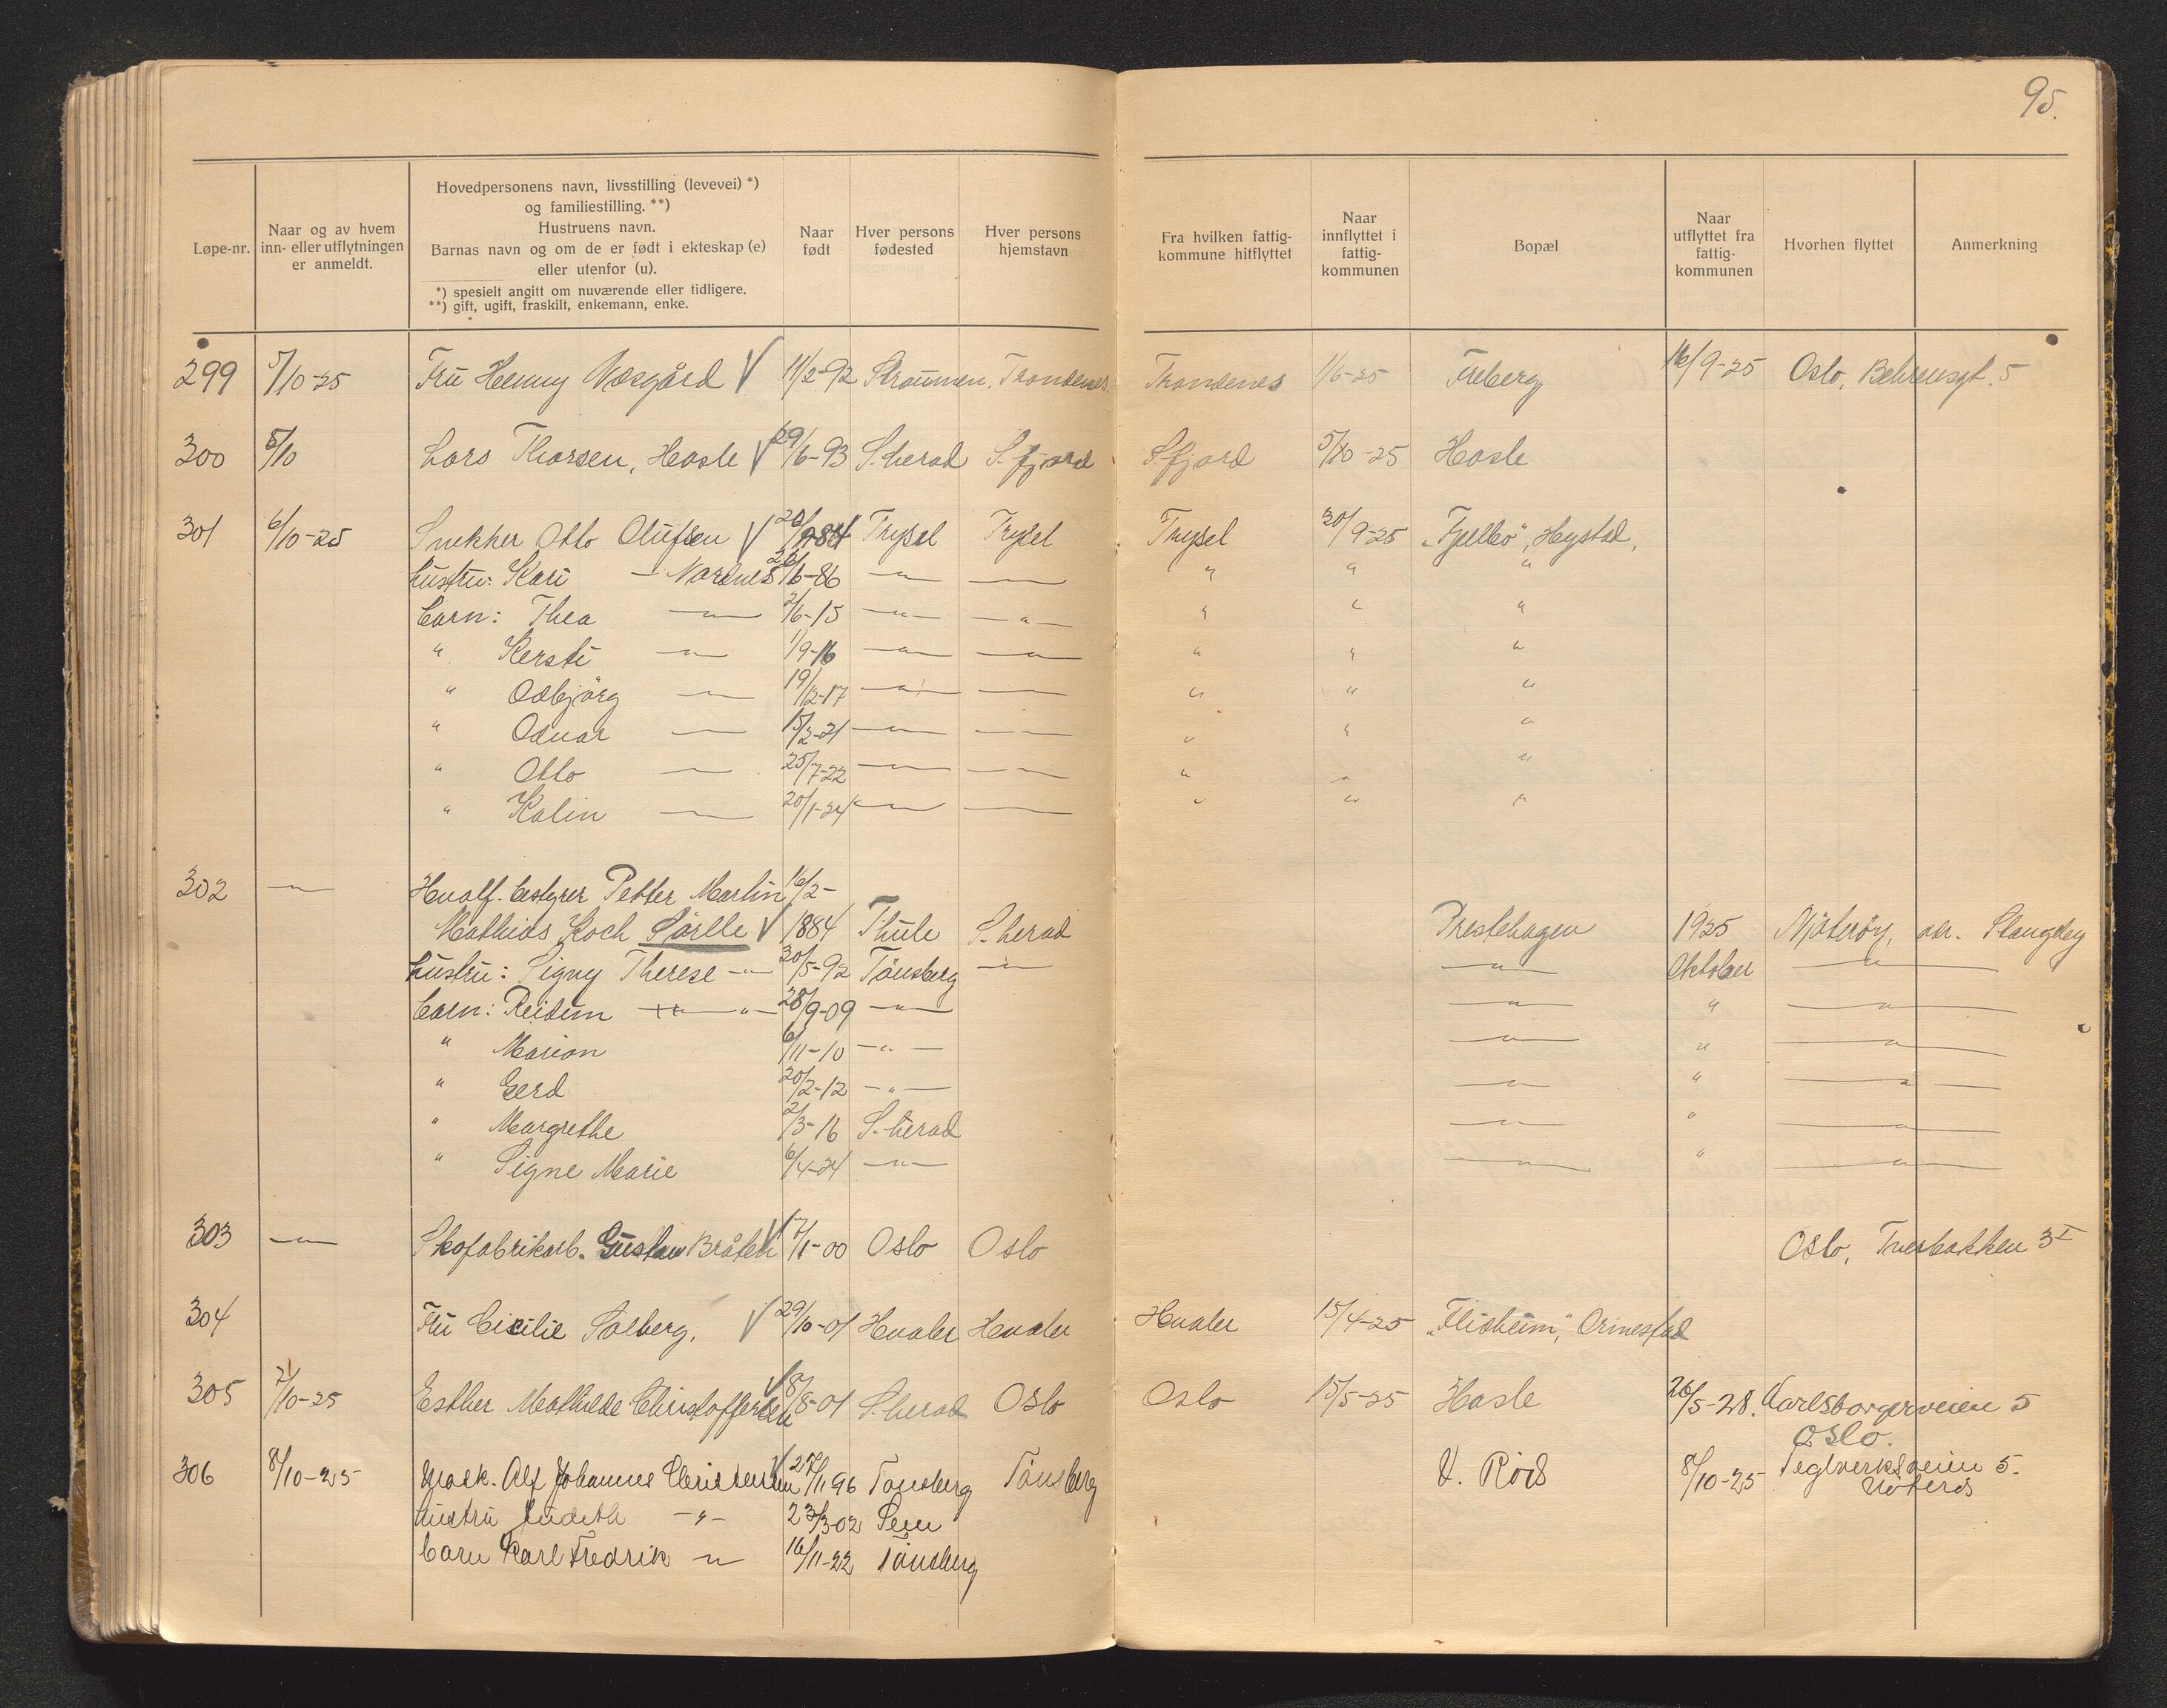 95.
Løpe-nr.
Naar og av hvem
inn- eller utflytningen
er anmeldt.
Hovedpersonens navn, livsstilling (levevei) *)
og familiestilling. **)
Hustruens navn.
Barnas navn og om de er født i ekteskap (e)
eller utenfor (u).
*) spesielt angitt om nuværende eller tidligere.
**) gift, ugift, fraskilt, enkemann, enke.
Naar
født
Hver persons
fødested
Hver persons
hjemstavn
Fra hvilken fattig-
kommune hitflyttet
Naar
innflyttet i
fattig-
kommunen
Bopæl
Naar
utflyttet fra
fattig-
kommunen
Hvorhen flyttet
Anmerkning
299 5/10-25 Fru Henny Næsgård V 11/2-92 Straumen, Trondenes. Trondenes 1/6-25 Freberg 16/9-25 Oslo, Behrensgt. 5
300 5/10 Lars Thorsen, Hasle V 29/6-93 S.herad S.fjord S.fjord 5/10-25 Hasle
301 6/10-25 Snekker Otto Olufsen V 20/9-84 Trysel Trysel Trysel 30/9-25 "Fjellbo", Hystad,
hustru: Kari — Nordnes 26/6-86 —"— —"— " " "
barn: Thea —"— 2/6-15 —"— —"— " " "
" Kersti —"— 1/9-16 —"— —"— " " "
" Odbjörg —"— 19/12-17 —"— —"— " " "
" Odvar —"— 15/2-21 —"— —"— " " "
" Otto —"— 25/7-22 —"— —"— " " "
" Kalin —"— 20/1-24 —"— —"— " " "
302 —"— Hvalf.bestyrer Petter Martin 16/2-
Mathias Koch Sörlle V 1884 Thule S.herad Prestehagen 1925 Njöteröy, adr. Slangeley
hustru: Signy Therese —"— 30/5-92 Tönsberg —"— —"— Oktober —"—
barn: Reidun —"— 28/9-09 —"— —"— " —"—
" Marion 6/11-10 —"— —"— " —"—
" Gerd 20/2-12 —"— —"— " —"—
" Margrethe 2/3-16 S.herad —"— " —"—
" Signe Marie 6/4-24 —"— —"— " —"—
303 —"— Skofabrikarb. Gustav Bråten V 17/1-00 Oslo Oslo Oslo, Tuerbakken 3 I
304 Fru Cicilie Solberg. V 29/10-01 Hvaler Hvaler Hvaler 15/4-25 "Flisheim", Ormestad
305 7/10-25 Esther Mathilde Christoffersen V 8/8-01 S.herad Oslo Oslo 15/5-25 Hasle 26/5-28. Karlsborgerveien 5
Oslo.
306 8/10-25 Mask. Alf Johannes Christensen V 27/11 96 Tønsberg Tönsberg V. Röd 8/10-25 Teglverksveien 5.
Nöterö
hustru Judith —"— 23/3-02 Sem
barn Karl Fredrik —"— 16/11-22 Tönsberg